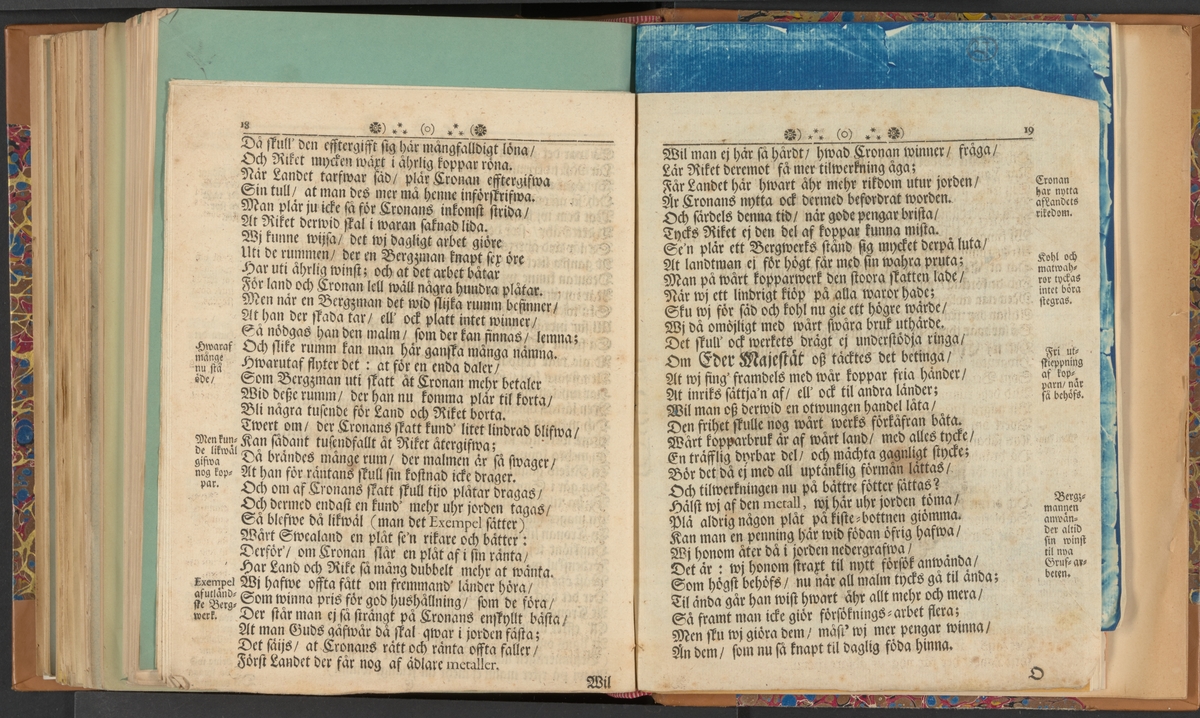 18
Då skull' den efftergifft sig här mångfalldigt löna/
Och Riket mycken wäxt i åhrlig koppar röna.
När Landet tarfwar säd/ plär Cronan efftergifwa
Sin tull/ at man des mer må henne införskrifwa.
Man plär ju icke så för Cronans inkomst strida/
At Riket derwid skal i waran saknad lida.
Wj kunne wijsa/ det wj dagligt arbet giöre
Uti de rummen/ der en Bergzman knapt sex öre
Har uti åhrlig winst; och at det arbet båtar
För land och Cronan lell wäll några hundra plåtar.
Men när en Bergzman det wid slijka rumm befinner/
At han der skada tar/ ell' ock platt intet winner/
Så nödgas han den malm/ som der kan finnas/ lemna;
Och slike rumm kan man här ganska många nämna.
Hwarutaf flyter det: at för en enda daler/
Som Bergzman uti skatt åt Cronan mehr betaler
Wid deße rumm/ der han nu komma plär til korta/
Bli några tusende för Land och Riket borta.
Twert om/ der Cronans skatt kund' litet lindrad blifwa/
Kan sådant tusendfallt åt Riket återgifwa;
Då brändes månge rum/ der malmen är så swager/
At han för räntans skull sin kostnad icke drager.
Och om af Cronans skatt skull tijo plåtar dragas/
Och dermed endast en kund' mehr uhr jorden tagas/
Så blefwe då likwäl (man det Exempel sätter)
Wårt Swealand en plåt se'n rikare och bätter:
Derför'/ om Cronan slår en plåt af i sin ränta/
Har Land och Rike så mång dubbelt mehr at wänta.
Wj hafwe offta fått om fremmand' länder höra/
Som winna pris för god hushållning/ som de föra/
Der står man ej så strängt på Cronans enskyllt bästa/
At man Guds gåfwår då skal qwar i jorden fästa;
Det säijs/ at Cronans rätt och ränta offta faller/
Först Landet der får nog af ädlare metaller.
Hwaraf
månge
nu stå
öde/
Men kun-
de likwäl
gifwa
nog kop-
par.
Exempel
af utländ-
ske Berg-
werk.
Wil
19
Wil man ej här så hårdt/ hwad Cronan winner/ fråga/
Lär Riket deremot få mer tilwerkning äga;
Får Landet här hwart åhr mehr rikdom utur jorden/
Är Cronans nytta ock dermed befordrat worden.
Och särdels denna tid/ när gode pengar brista/
Tycks Riket ej den del af koppar kunna mista.
Se'n plär ett Bergwerks stånd sig mycket derpå luta/
At landtman ej för högt får med sin wahra pruta;
Man på wårt kopparwerk den stoora skatten lade/
När wj ett lindrigt kiöp på alla waror hade;
Sku wj för säd och kohl nu gie ett högre wärde/
Wj då omöjligt med wårt swåra bruk uthärde.
Det skull' ock werkets drägt ej understödja ringa/
Om Eder Majestät oß täcktes det betinga/
At wj fing' framdels med wår koppar fria händer/
At inriks sättja'n af/ ell' ock til andra länder;
Wil man oß derwid en otwungen handel låta/
Den frihet skulle nog wårt werks förkäfran båta.
Wårt kopparbruk är af wårt land/ med alles tycke/
En träfflig dyrbar del/ och mächta gagnligt stycke;
Bör det då ej med all uptänklig förmån lättas/
Och tilwerkningen nu på bättre fötter sättas?
Hälst wj af den metall, wj här uhr jorden töma/
Plä aldrig någon plåt på kiste-bottnen giömma.
Kan man en penning här wid födan öfrig hafwa/
Wj honom åter då i jorden nedergrafwa/
Det är: wj honom straxt til nytt försök anwända/
Som högst behöfs/ nu när all malm tycks gå til ända;
Til ända går han wist hwart åhr allt mehr och mera/
Så framt man icke giör försöknings-arbet flera;
Men sku wj giöra dem/ måst' wj mer pengar winna/
Än dem/ som nu så knapt til daglig föda hinna.
Cronan
har nytta
af Landets
rikedom.
Kohl och
matwah-
ror tyckas
intet böra
stegras.
Fri ut-
skieppning
af kop-
parn/ när
så behöfs.
Bergz-
mannen
anwän-
der altid
sin winst
til nya
Gruf-ar-
beten.
D